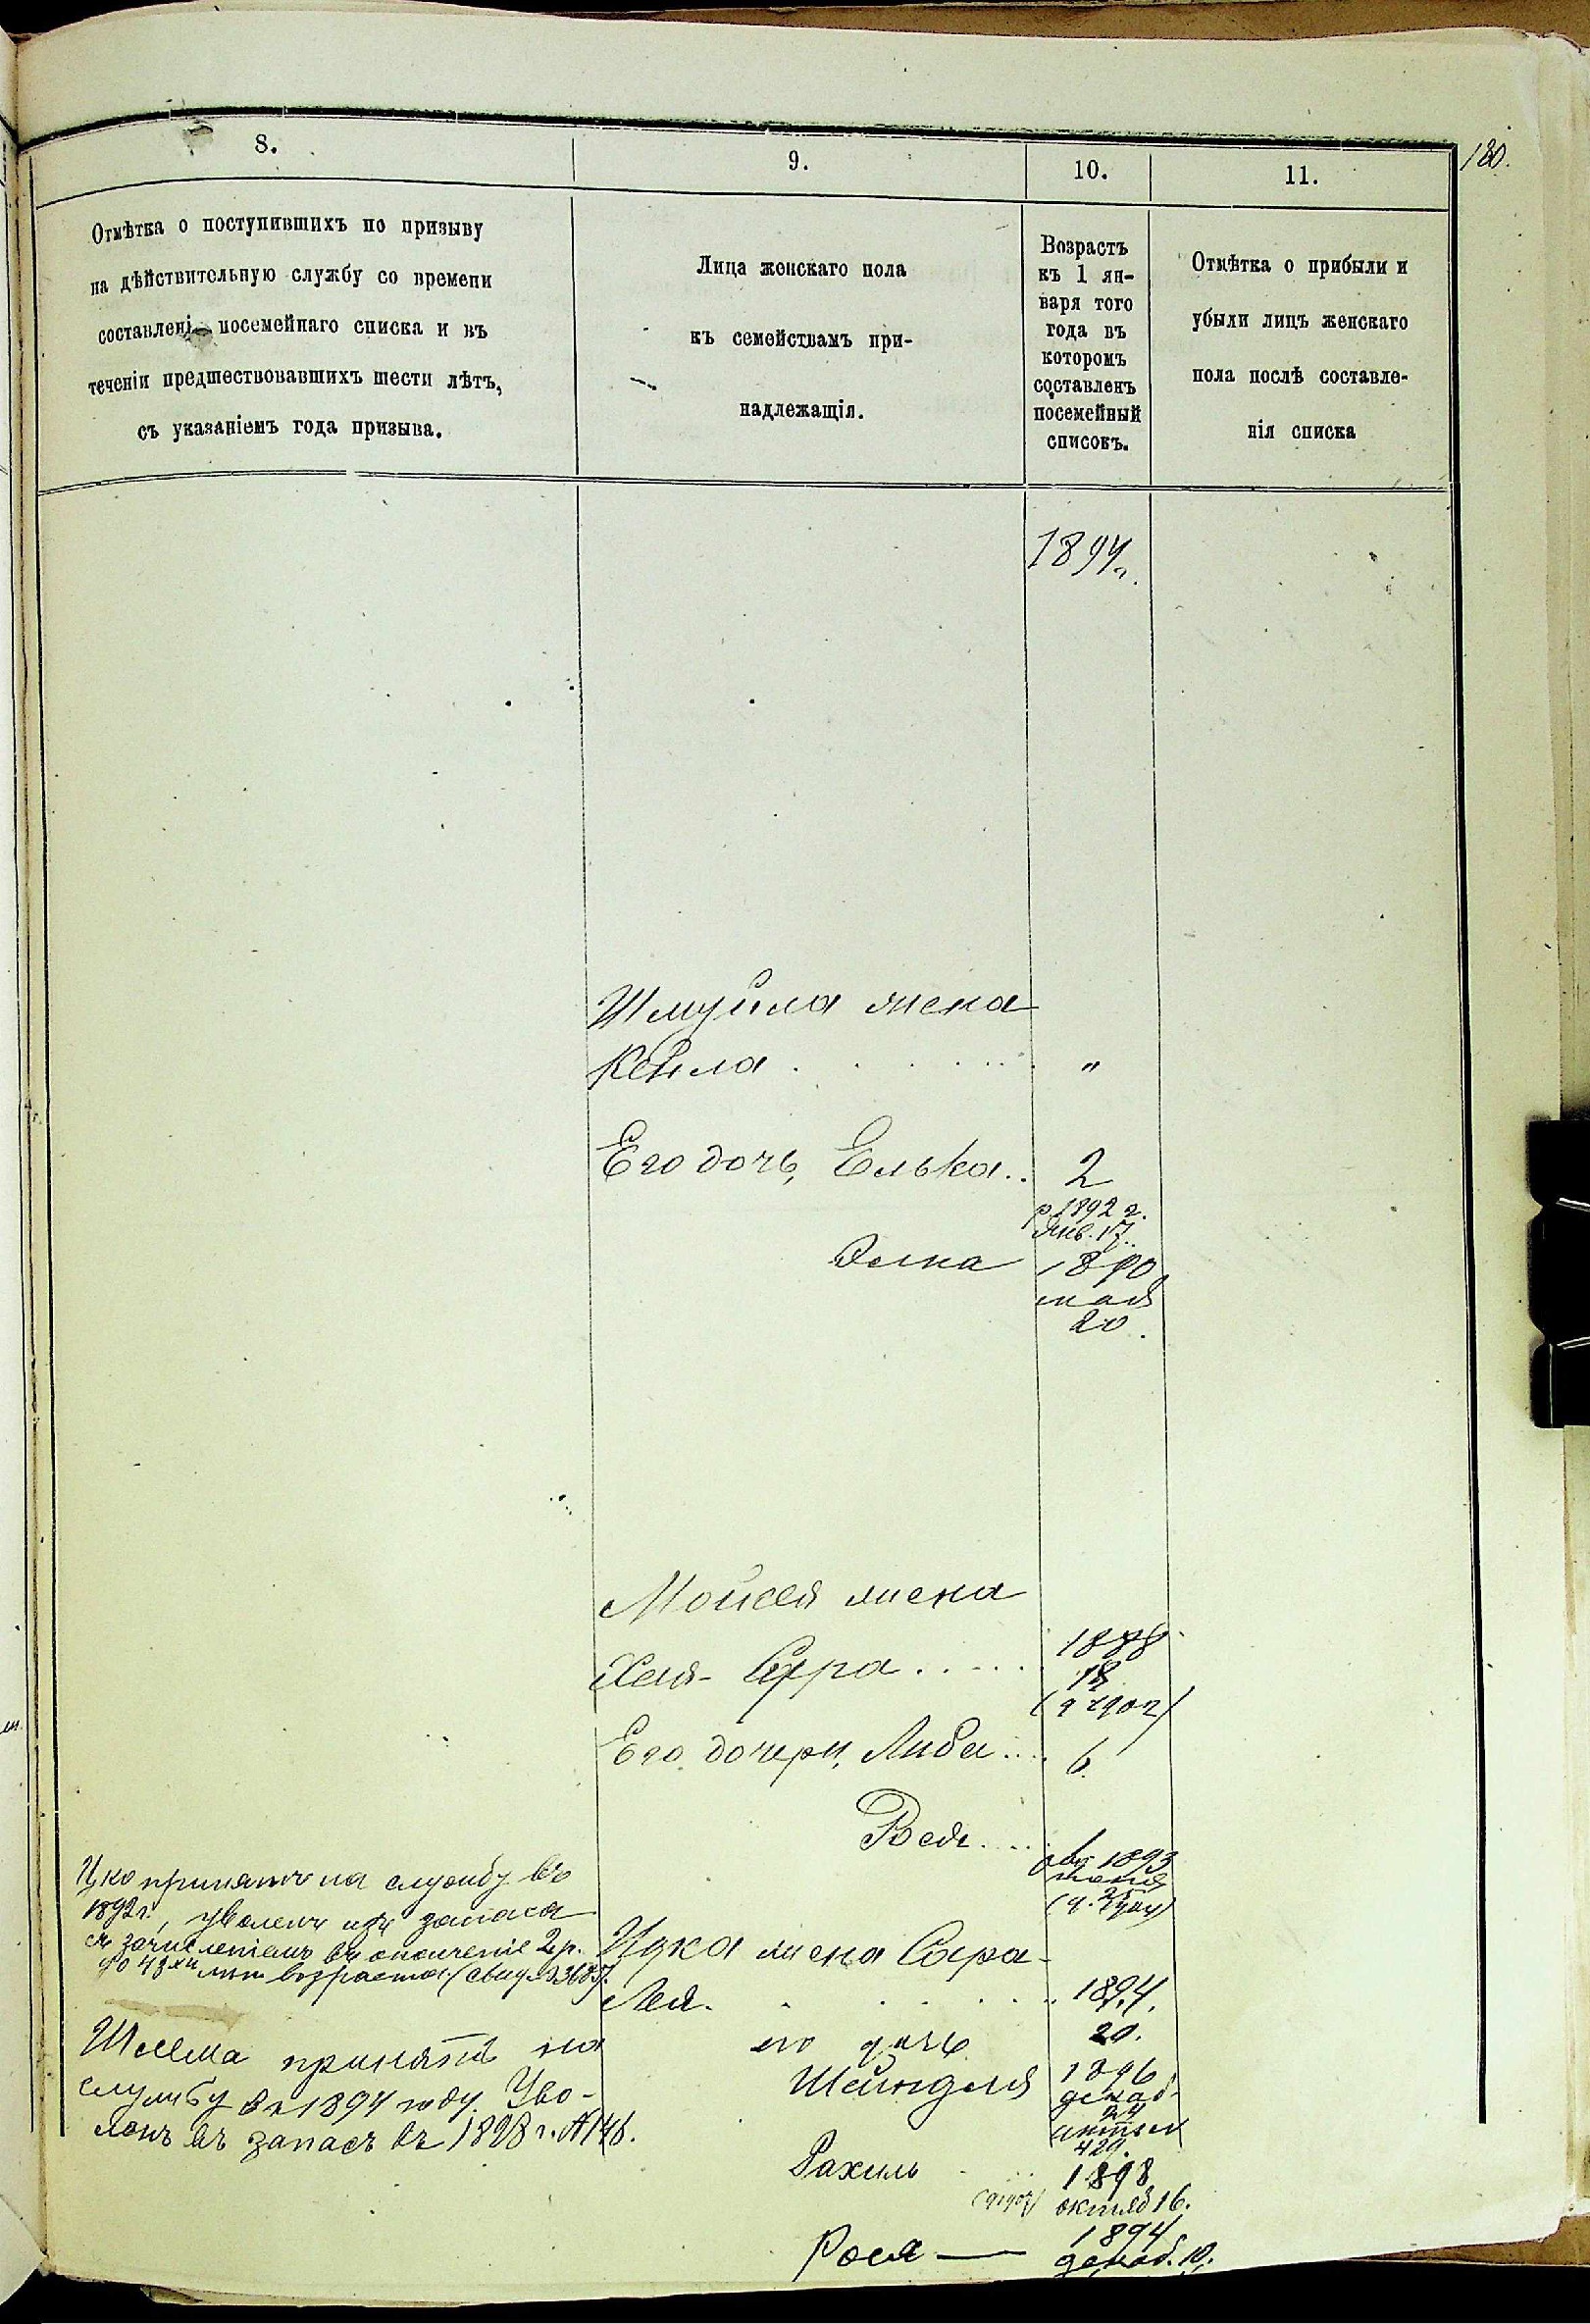 180.
8.
9.
10.
11.
Отмѣтка о поступившихъ по призыву
на дѣйствительную службу со времени
составлені посемейнаго списка и въ
теченіи предшествовавшихъ шести лѣтъ,
съ указаніемъ года призыва.
Лица женскаго пола
къ семействамъ при-
надлежащія.
Возрастъ
къ 1 ян-
варя того
года въ
которомъ
составленъ
посемейный
списокъ.
Отмѣтка о прибыли и
убыли лицъ женскаго
пола послѣ составле-
нія списка
1894 г.
Шмуйла жена
Кейла . . . . . . "
Его дочь, Елька.. 2
р. 1892 г.
Янв. 17.
1890
мая
20.
Мойсея жена
Хая-Сура . . . . . 1888
18
Его дочери, Либа .... 6.
Бея ....
1893
Ицко принятъ на службу въ
1892 г., уволенъ изъ запаса
съ зачисленіемъ въ ополченіе 2 р.
до 43хъ лѣт возраста
Шлема принятъ на
службу въ 1894 году. Уво-
ленъ въ запасъ въ 1898 г. № 146.
Ицка жена Сара-
Лея. . . . . . . 1894.
20.
его дочь
Шейндля 1896
декаб
24
429.
Рахиль . . . 1898
октяб 16.
Рося — 1894
декаб. 10.